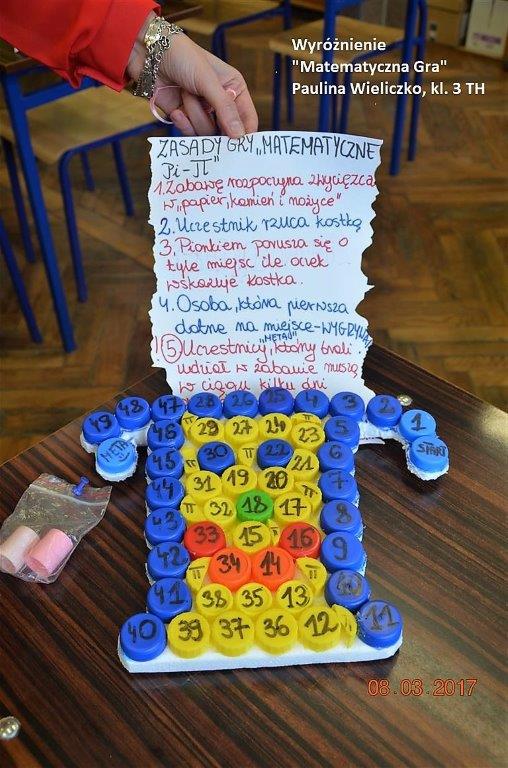 Wyróżnienie
"Matematyczna Gra"
Paulina Wieliczko, kl. 3 TH
ZASADY GRY „MATEMATYCZNE
Pi-π"
1. Zabawę rozpoczyna zwycięzca
w „papier, kamień i nożyce"
2. Uczestnik rzuca kostką
3. Pionkiem porusza się o
tyle miejsc ile oczek
wskazuje kostka.
4. Osoba, która pierwsza
dotrze na miejsce - WYGRYWA!
"META"
! 5 Uczestnicy, którzy brali
udział w zabawie muszą
w ciągu kilku dni
49 48 47 28 26 4 3 2 1
46 π 29 27 24 23 5
META 45 30 22 21 6 START
44 31 19 20 π 7
43 π 32 18 17 π 8
42 33 15 16 9
π 34 14 π
41 38 35 13 10
40 39 37 36 12 11
08.03.2017